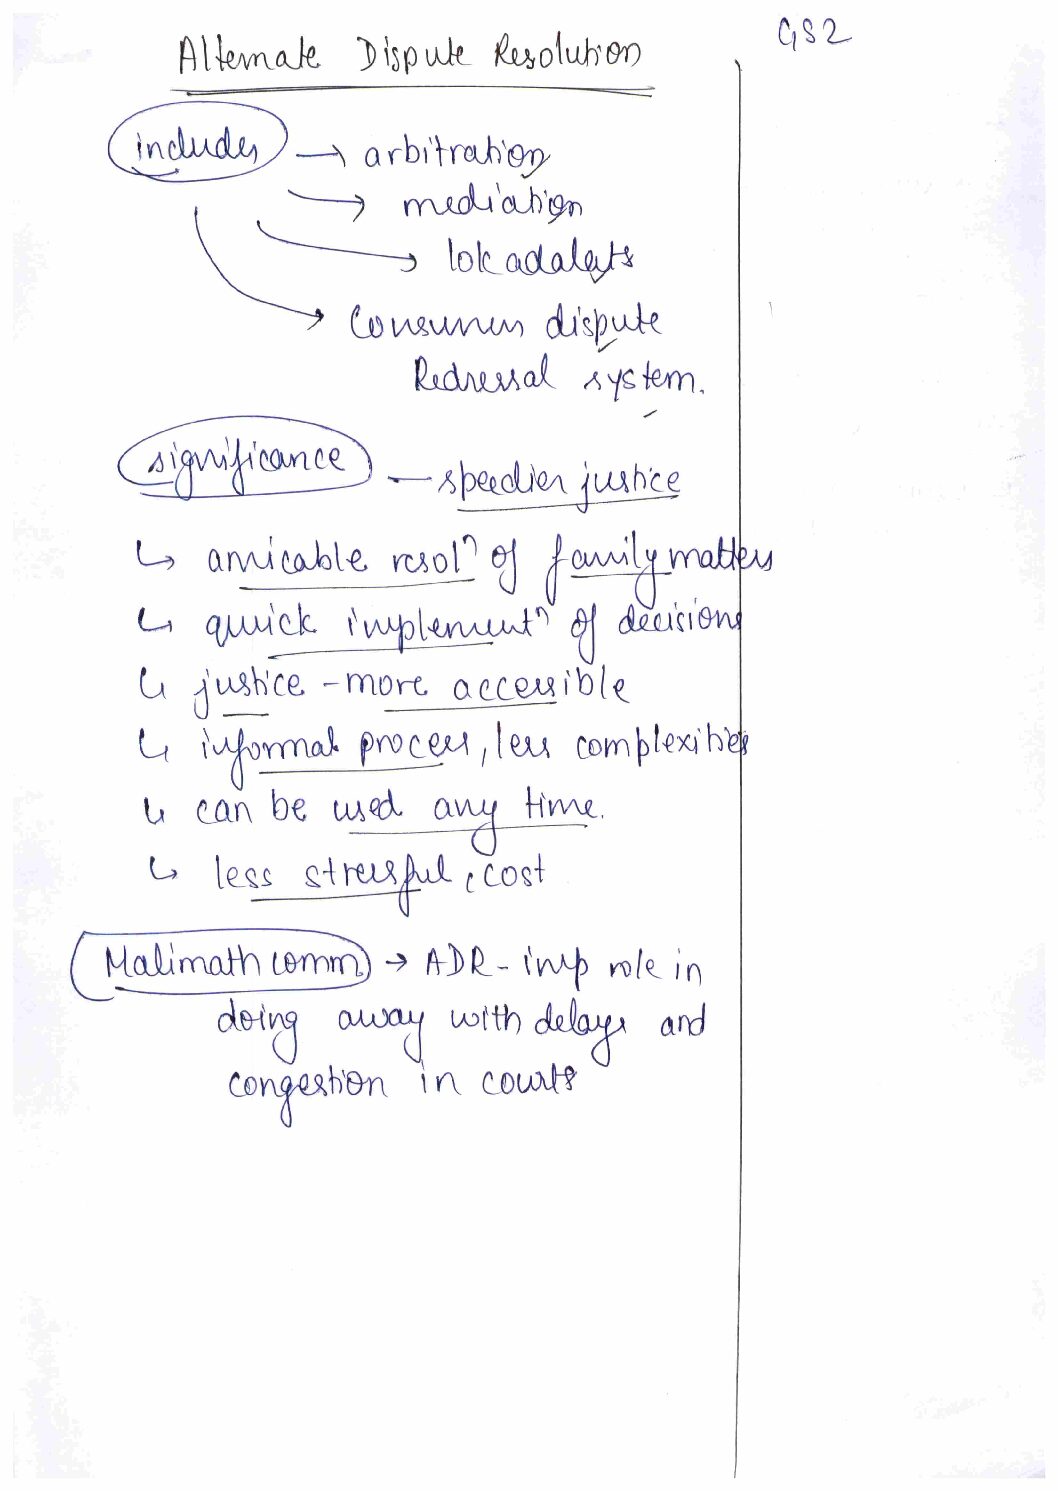 GS2
Alternate Dispute Resolution
includes → arbitration
→ mediation
→ lok adalats
→ Consumer dispute
Redressal system.
significance — speedier justice
↳ amicable resolⁿ of family matters
↳ quick implementⁿ of decisions
↳ justice - more accessible
↳ informal process, less complexities
↳ can be used any time.
↳ less stressful, cost
Malimath comm. → ADR - imp role in
doing away with delays and
congestion in courts